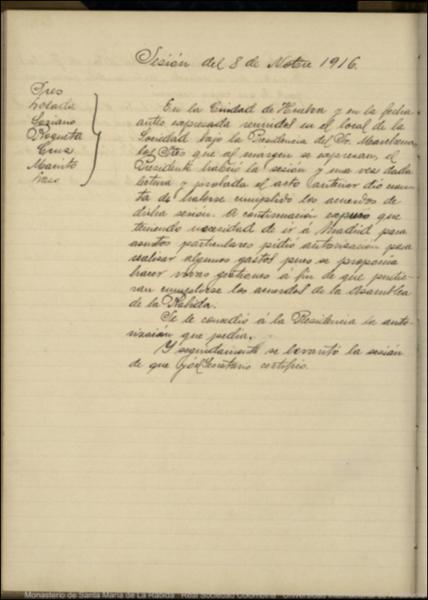 Sesión del 8 de Nobre 1916.
Sres
Lozano
Cruz
En la Ciudad de Huelva y en la fecha
antes expresada reunidos en el local de la
Sociedad bajo la Presidencia del Sr. Marchena
los Sres que al margen se expresan, el
Presidente habrió la sesión y una vez dada
lectura y probada el acta anterior dió cuen-
ta de haberse cumplido los acuerdos de
dicha sesión. A continuación expuso que
teniendo necesidad de ir á Madrid para
asuntos particulares pidió autorización para
realizar algunos gastos pues se proponía
hacer varias gestiones á fin de que pudie-
ran cumplirse los acuerdos de la Asamblea
de la Rábida.
Se le concedió á la Presidencia la auto-
rización que pedía.
Y seguidamente se levantó la sesión
de que yó el Secretario certifico.
Monasterio de Santa María de La Rábida - Real Sociedad Colombina - Universidad Internacional de Andalucía